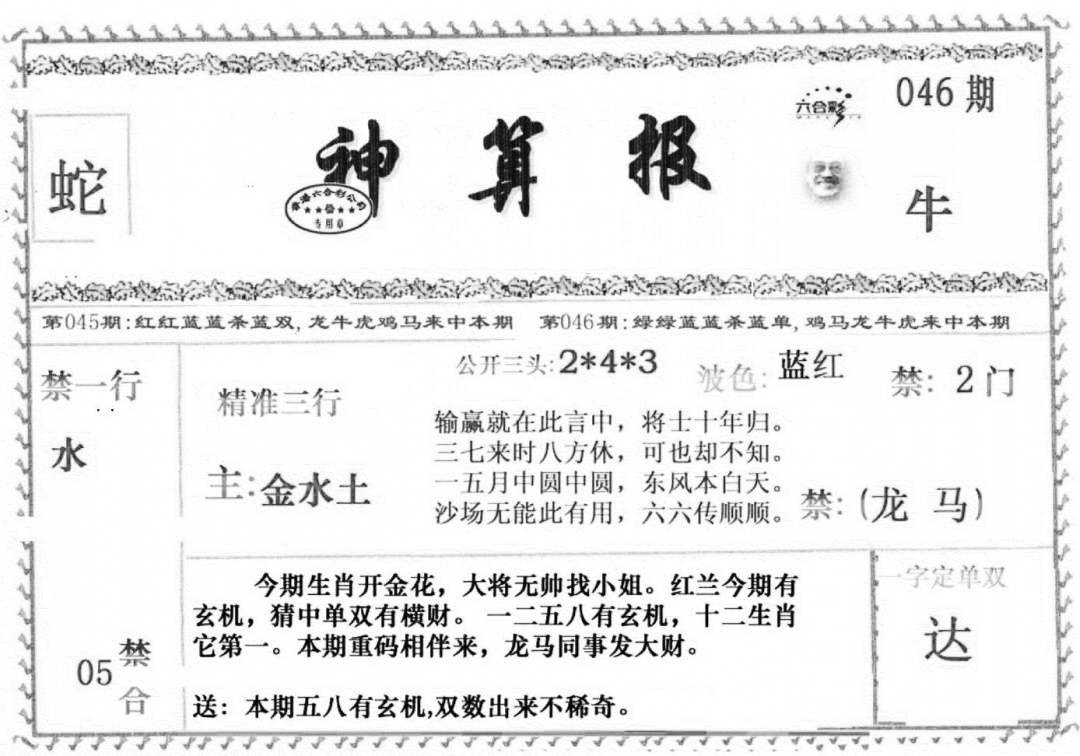 六合彩
046期
神算报
蛇
香港六合彩公司
专用章
牛
第045期:红红蓝蓝杀蓝双,龙牛虎鸡马来中本期 第046期:绿绿蓝蓝杀蓝单,鸡马龙牛虎来中本期
禁一行
水
精准三行
主:金水土
公开三头:2*4*3
波色:蓝红
禁:2门
输赢就在此言中，将士十年归。
三七来时八方休，可也却不知。
一五月中圆中圆，东风本白天。
沙场无能此有用，六六传顺顺。
禁:(龙 马)
05禁合
今期生肖开金花，大将无帅找小姐。红兰今期有
玄机，猜中单双有横财。一二五八有玄机，十二生肖
它第一。本期重码相伴来，龙马同事发大财。
送：本期五八有玄机,双数出来不稀奇。
一字定单双
达